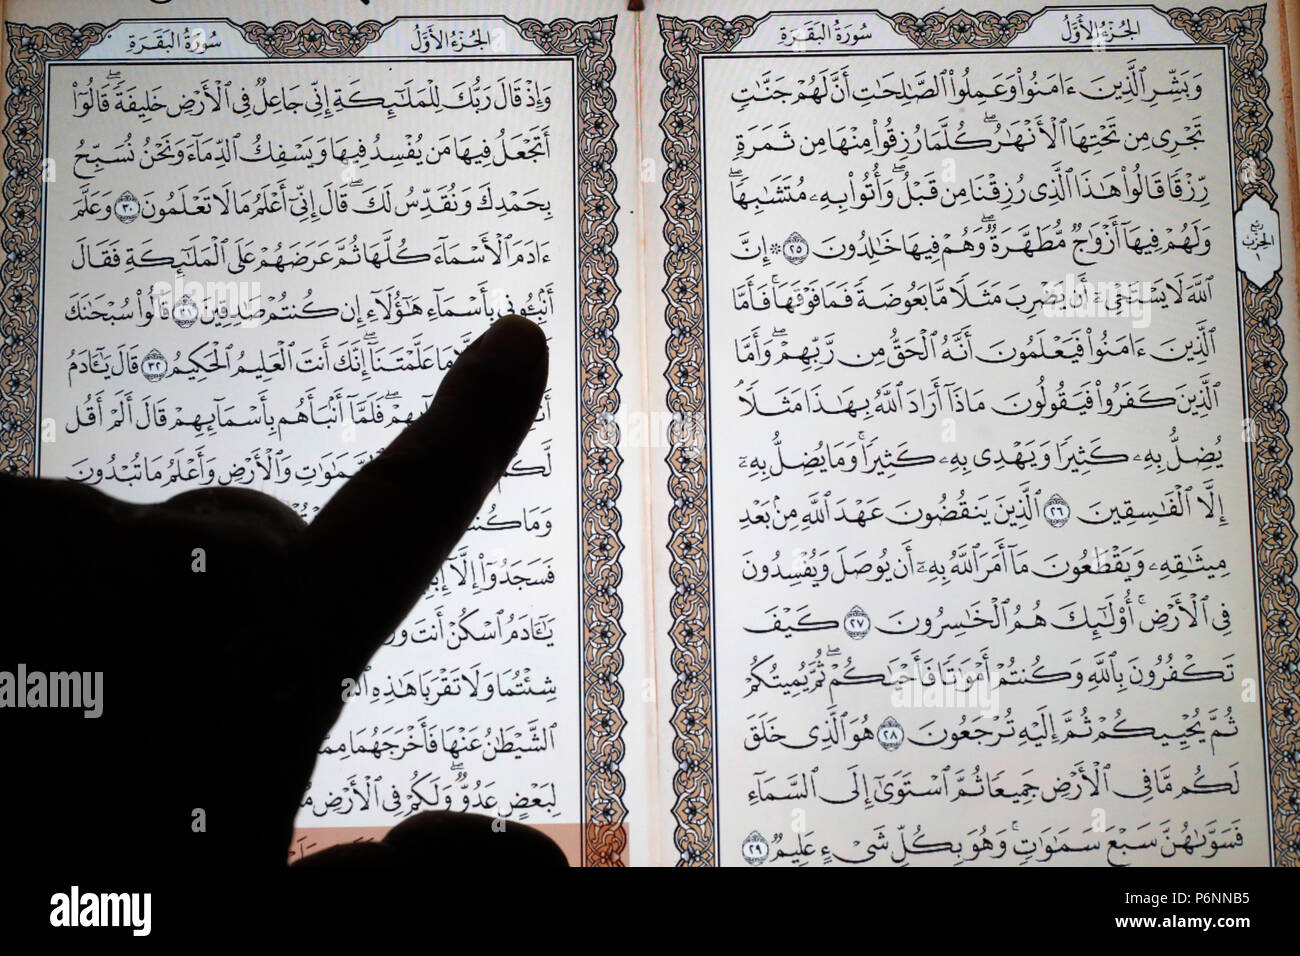 الجزء الأول
سورة البقرة
وَبَشِّرِ الَّذِينَ ءَامَنُوا۟ وَعَمِلُوا۟ الصَّالِحَاتِ أَنَّ لَهُمْ جَنَّاتٍ
تَجْرِى مِن تَحْتِهَا الْأَنْهَارُ ۖ كُلَّمَا رُزِقُوا۟ مِنْهَا مِن ثَمَرَةٍ
رِّزْقًا قَالُوا۟ هَٰذَا الَّذِى رُزِقْنَا مِن قَبْلُ ۖ وَأُتُوا۟ بِهِۦ مُتَشَابِهًا ۖ
وَلَهُمْ فِيهَآ أَزْوَاجٌ مُّطَهَّرَةٌ ۖ وَهُمْ فِيهَا خَالِدُونَ ٢٥ ۞ إِنَّ
اللَّهَ لَا يَسْتَحْىِۦٓ أَن يَضْرِبَ مَثَلًا مَّا بَعُوضَةً فَمَا فَوْقَهَا ۚ فَأَمَّا
الَّذِينَ ءَامَنُوا۟ فَيَعْلَمُونَ أَنَّهُ الْحَقُّ مِن رَّبِّهِمْ ۖ وَأَمَّا
الَّذِينَ كَفَرُوا۟ فَيَقُولُونَ مَاذَآ أَرَادَ اللَّهُ بِهَٰذَا مَثَلًا ۘ
يُضِلُّ بِهِۦ كَثِيرًا وَيَهْدِى بِهِۦ كَثِيرًا ۚ وَمَا يُضِلُّ بِهِۦٓ
إِلَّا الْفَاسِقِينَ ٢٦ الَّذِينَ يَنقُضُونَ عَهْدَ اللَّهِ مِنۢ بَعْدِ
مِيثَاقِهِۦ وَيَقْطَعُونَ مَآ أَمَرَ اللَّهُ بِهِۦٓ أَن يُوصَلَ وَيُفْسِدُونَ
فِى الْأَرْضِ ۚ أُو۟لَٰٓئِكَ هُمُ الْخَاسِرُونَ ٢٧ كَيْفَ
تَكْفُرُونَ بِاللَّهِ وَكُنتُمْ أَمْوَاتًا فَأَحْيَاكُمْ ۖ ثُمَّ يُمِيتُكُمْ
ثُمَّ يُحْيِيكُمْ ثُمَّ إِلَيْهِ تُرْجَعُونَ ٢٨ هُوَ الَّذِى خَلَقَ
لَكُم مَّا فِى الْأَرْضِ جَمِيعًا ثُمَّ اسْتَوَىٰٓ إِلَى السَّمَآءِ
فَسَوَّاهُنَّ سَبْعَ سَمَاوَاتٍ ۚ وَهُوَ بِكُلِّ شَىْءٍ عَلِيمٌ ٢٩
ربع
الحزب
١
الجزء الأول
سورة البقرة
وَإِذْ قَالَ رَبُّكَ لِلْمَلَٰٓئِكَةِ إِنِّى جَاعِلٌ فِى الْأَرْضِ خَلِيفَةً ۖ قَالُوٓا۟
أَتَجْعَلُ فِيهَا مَن يُفْسِدُ فِيهَا وَيَسْفِكُ الدِّمَآءَ وَنَحْنُ نُسَبِّحُ
بِحَمْدِكَ وَنُقَدِّسُ لَكَ ۖ قَالَ إِنِّىٓ أَعْلَمُ مَا لَا تَعْلَمُونَ ٣٠ وَعَلَّمَ
ءَادَمَ الْأَسْمَآءَ كُلَّهَا ثُمَّ عَرَضَهُمْ عَلَى الْمَلَٰٓئِكَةِ فَقَالَ
أَنۢبِـُٔونِى بِأَسْمَآءِ هَٰٓؤُلَآءِ إِن كُنتُمْ صَادِقِينَ ٣١ قَالُوا۟ سُبْحَانَكَ
مَا عَلَّمْتَنَآ ۖ إِنَّكَ أَنتَ الْعَلِيمُ الْحَكِيمُ ٣٢ قَالَ يَٰٓـَٔادَمُ
فَلَمَّآ أَنۢبَأَهُم بِأَسْمَآئِهِمْ قَالَ أَلَمْ أَقُل
لَّكُمْ السَّمَاوَاتِ وَالْأَرْضِ وَأَعْلَمُ مَا تُبْدُونَ
وَمَا
فَسَجَدُوٓا۟ إِلَّآ
يَٰٓـَٔادَمُ اسْكُنْ أَنتَ
شِئْتُمَا وَلَا تَقْرَبَا هَٰذِهِ
الشَّيْطَانُ عَنْهَا فَأَخْرَجَهُمَا مِمَّا
لِبَعْضٍ عَدُوٌّ ۖ وَلَكُمْ فِى الْأَرْضِ
alamy
Image ID: P6NNB5
www.alamy.com